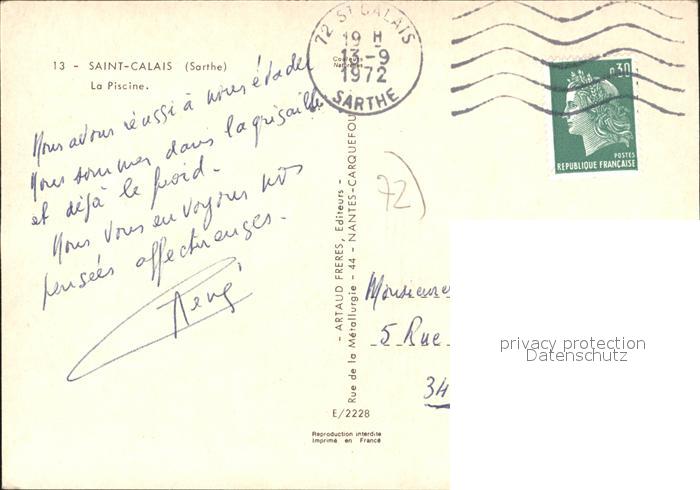 13 - SAINT-CALAIS (Sarthe)
La Piscine.
Nous avons réussi à nous évader
Nous sommes dans la grisaille
et déjà le froid.
Nous vous envoyons nos
pensées affectueuses.
72 ST CALAIS
19 H
13-9
1972
SARTHE
Couleurs
Naturelles
0,30
POSTES
REPUBLIQUE FRANÇAISE
72)
- ARTAUD FRERES, Editeurs -
Rue de la Métallurgie - 44 - NANTES-CARQUEFOU
5 Rue
34
E/2228
Reproduction interdite
Imprimé en France
privacy protection
Datenschutz